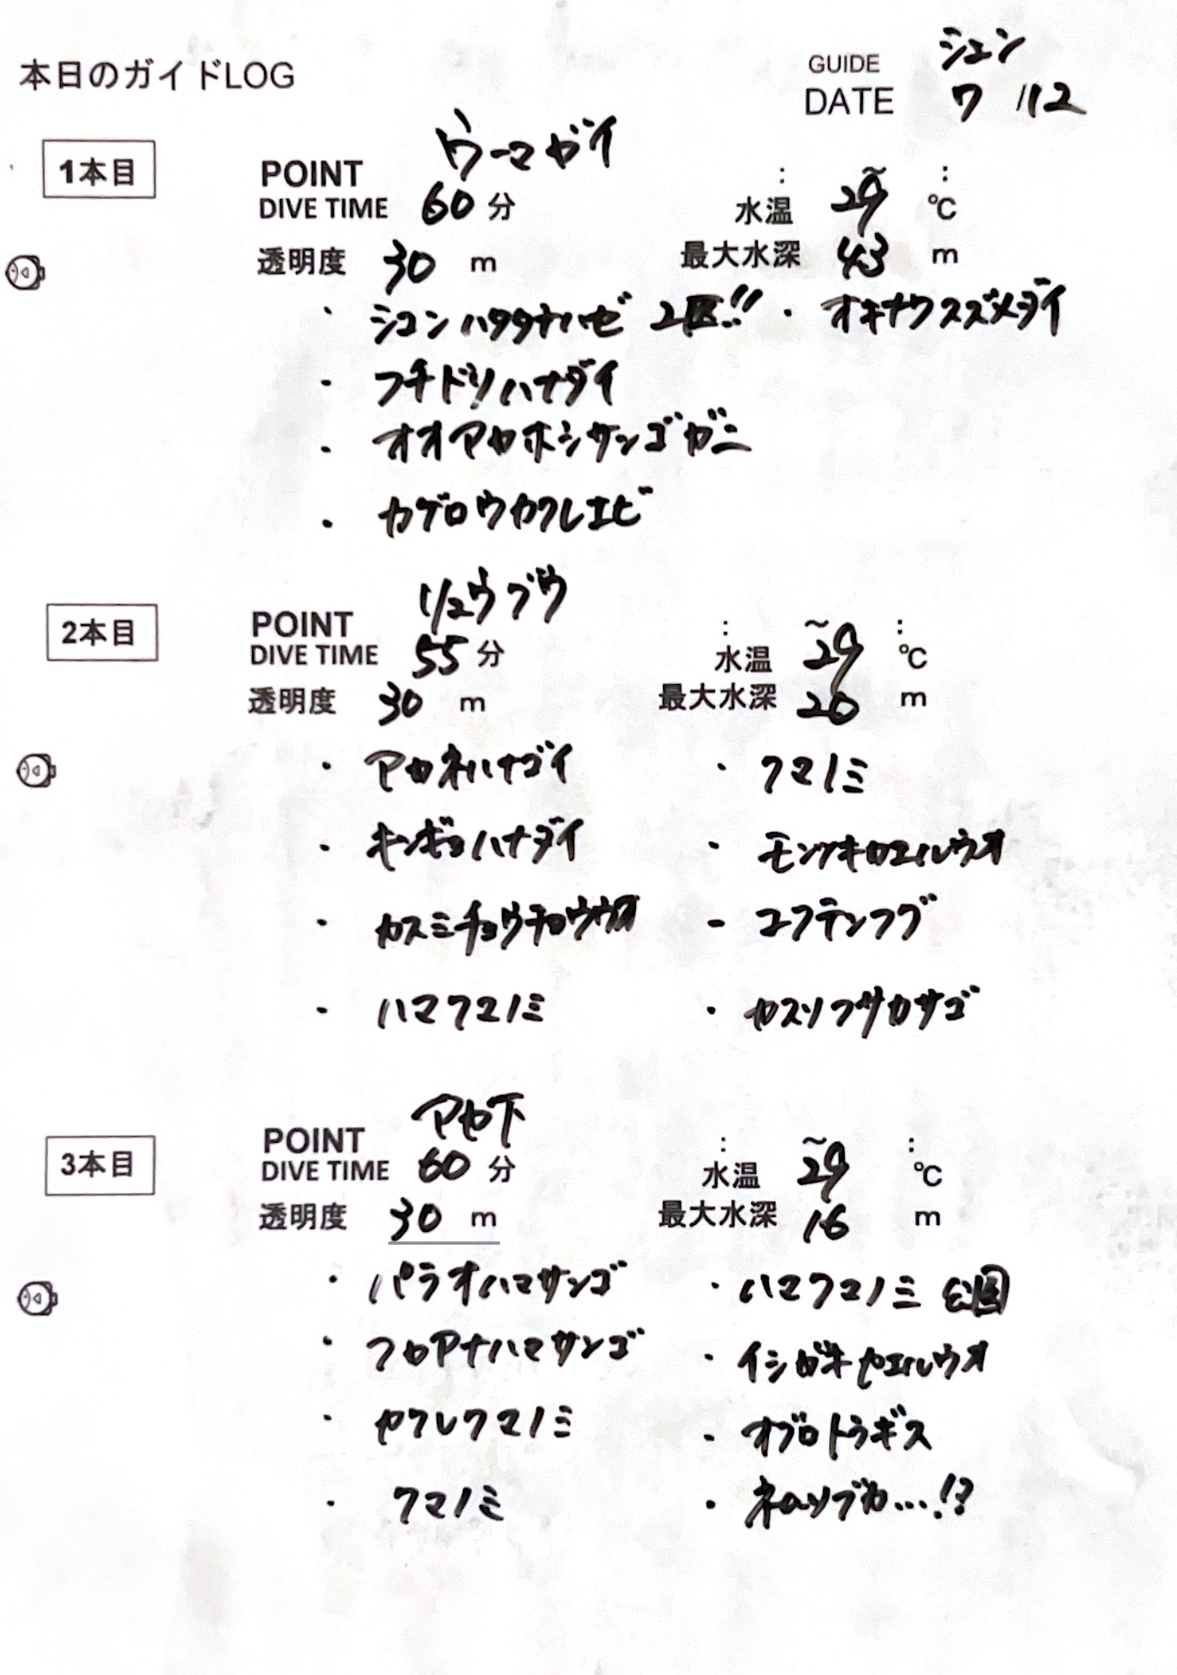 本日のガイドLOG
GUIDE シュン
DATE 7/12
1本目
POINT ウーマガイ
DIVE TIME 60 分
: ~ :
水温 29 ℃
透明度 30 m
最大水深 43 m
・シコンハタタテハゼ 2匹!!
・オキナワスズメダイ
・フチドリハナダイ
・オオアカホシサンゴガニ
・カゲロウカクレエビ
2本目
POINT 1/2ウブウ
DIVE TIME 55 分
: ~ :
水温 29 ℃
透明度 30 m
最大水深 26 m
・アカネハナゴイ
・クマノミ
・キンギョハナダイ
・モンツキカエルウオ
・カスミチョウチョウウオ
・コクテンフグ
・ハマクマノミ
・カスリフサカサゴ
3本目
POINT アカ下
DIVE TIME 60 分
: ~ :
水温 29 ℃
透明度 30 m
最大水深 16 m
・パラオハマサンゴ
・ハマクマノミ 公園
・フカアナハマサンゴ
・イシガキカエルウオ
・カクレクマノミ
・オグロトラギス
・クマノミ
・ネムリブカ…!?